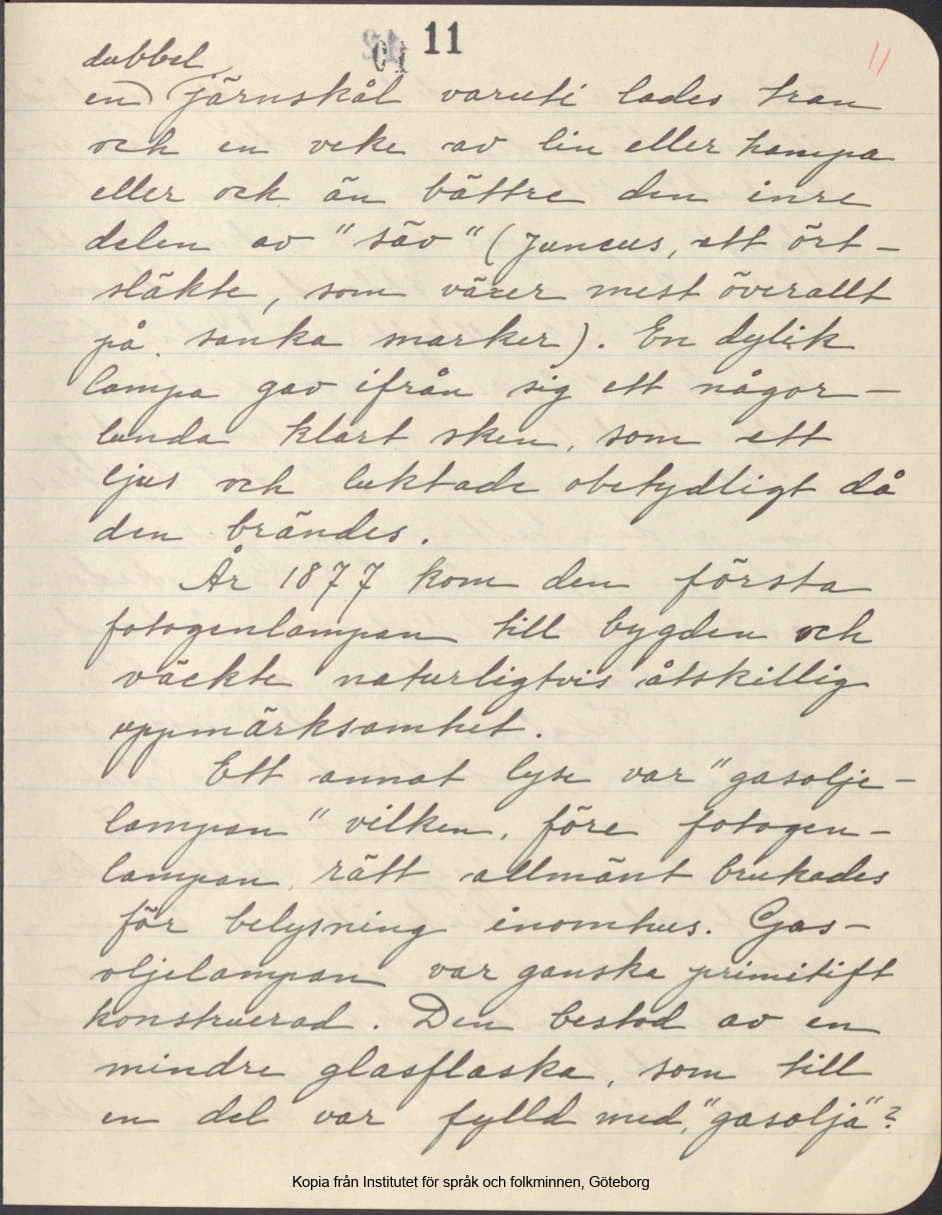 11
11
dubbel
en järnskål varuti lades tran
och en veke av lin eller hampa
eller ock än bättre den inre
delen av "säv" (Juncus, ett ört-
släkte, som växer mest överallt
på sanka marker). En dylik
lampa gav ifrån sig ett någor-
lunda klart sken, som ett
ljus och luktade obetydligt då
den brändes.
År 1877 kom den första
fotogenlampan till bygden och
väckte naturligtvis åtskillig
uppmärksamhet.
Ett annat lyse var "gasolje-
lampan" vilken, före fotogen-
lampan, rätt allmänt brukades
för belysning inomhus. Gas-
oljelampan var ganska primitift
konstruerad. Den bestod av en
mindre glasflaska, som till
en del var fylld med "gasolja"?
Kopia från Institutet för språk och folkminnen, Göteborg